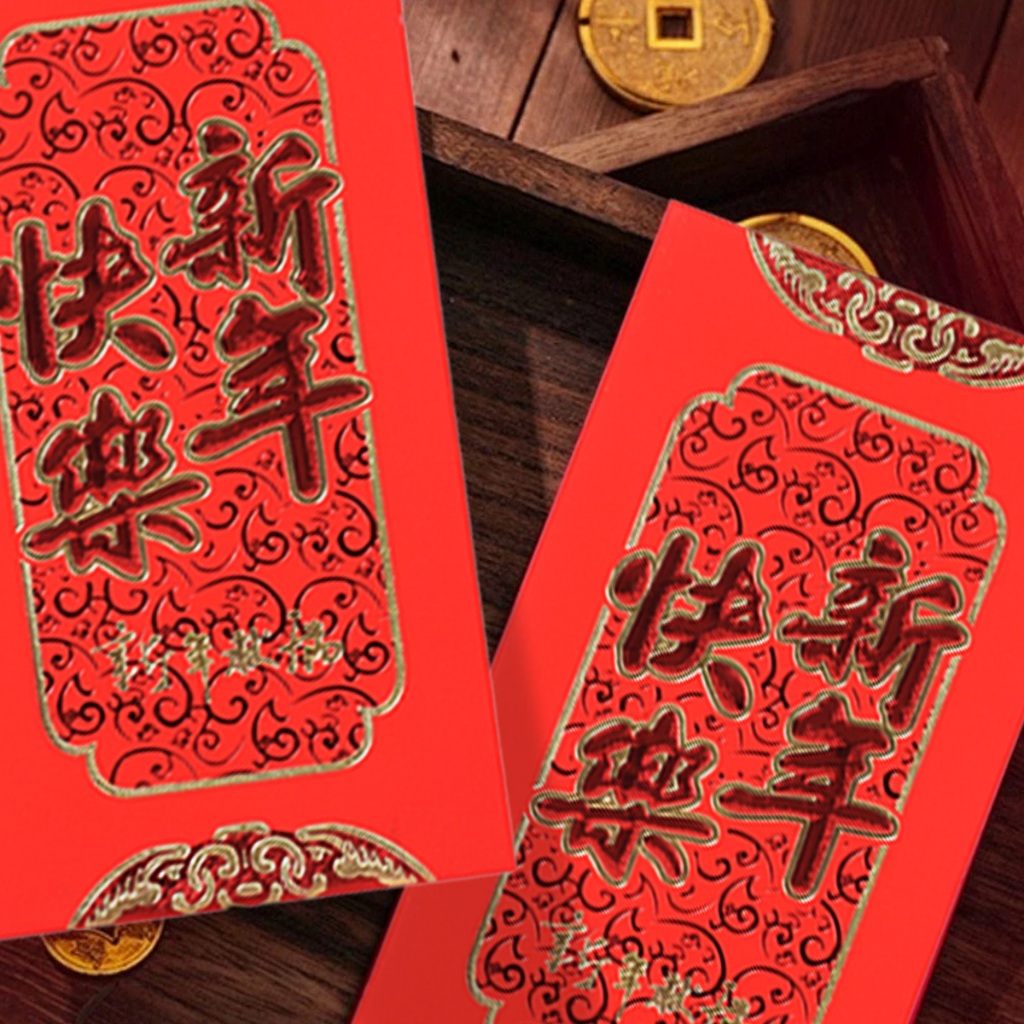 新年
快樂
新年
快樂